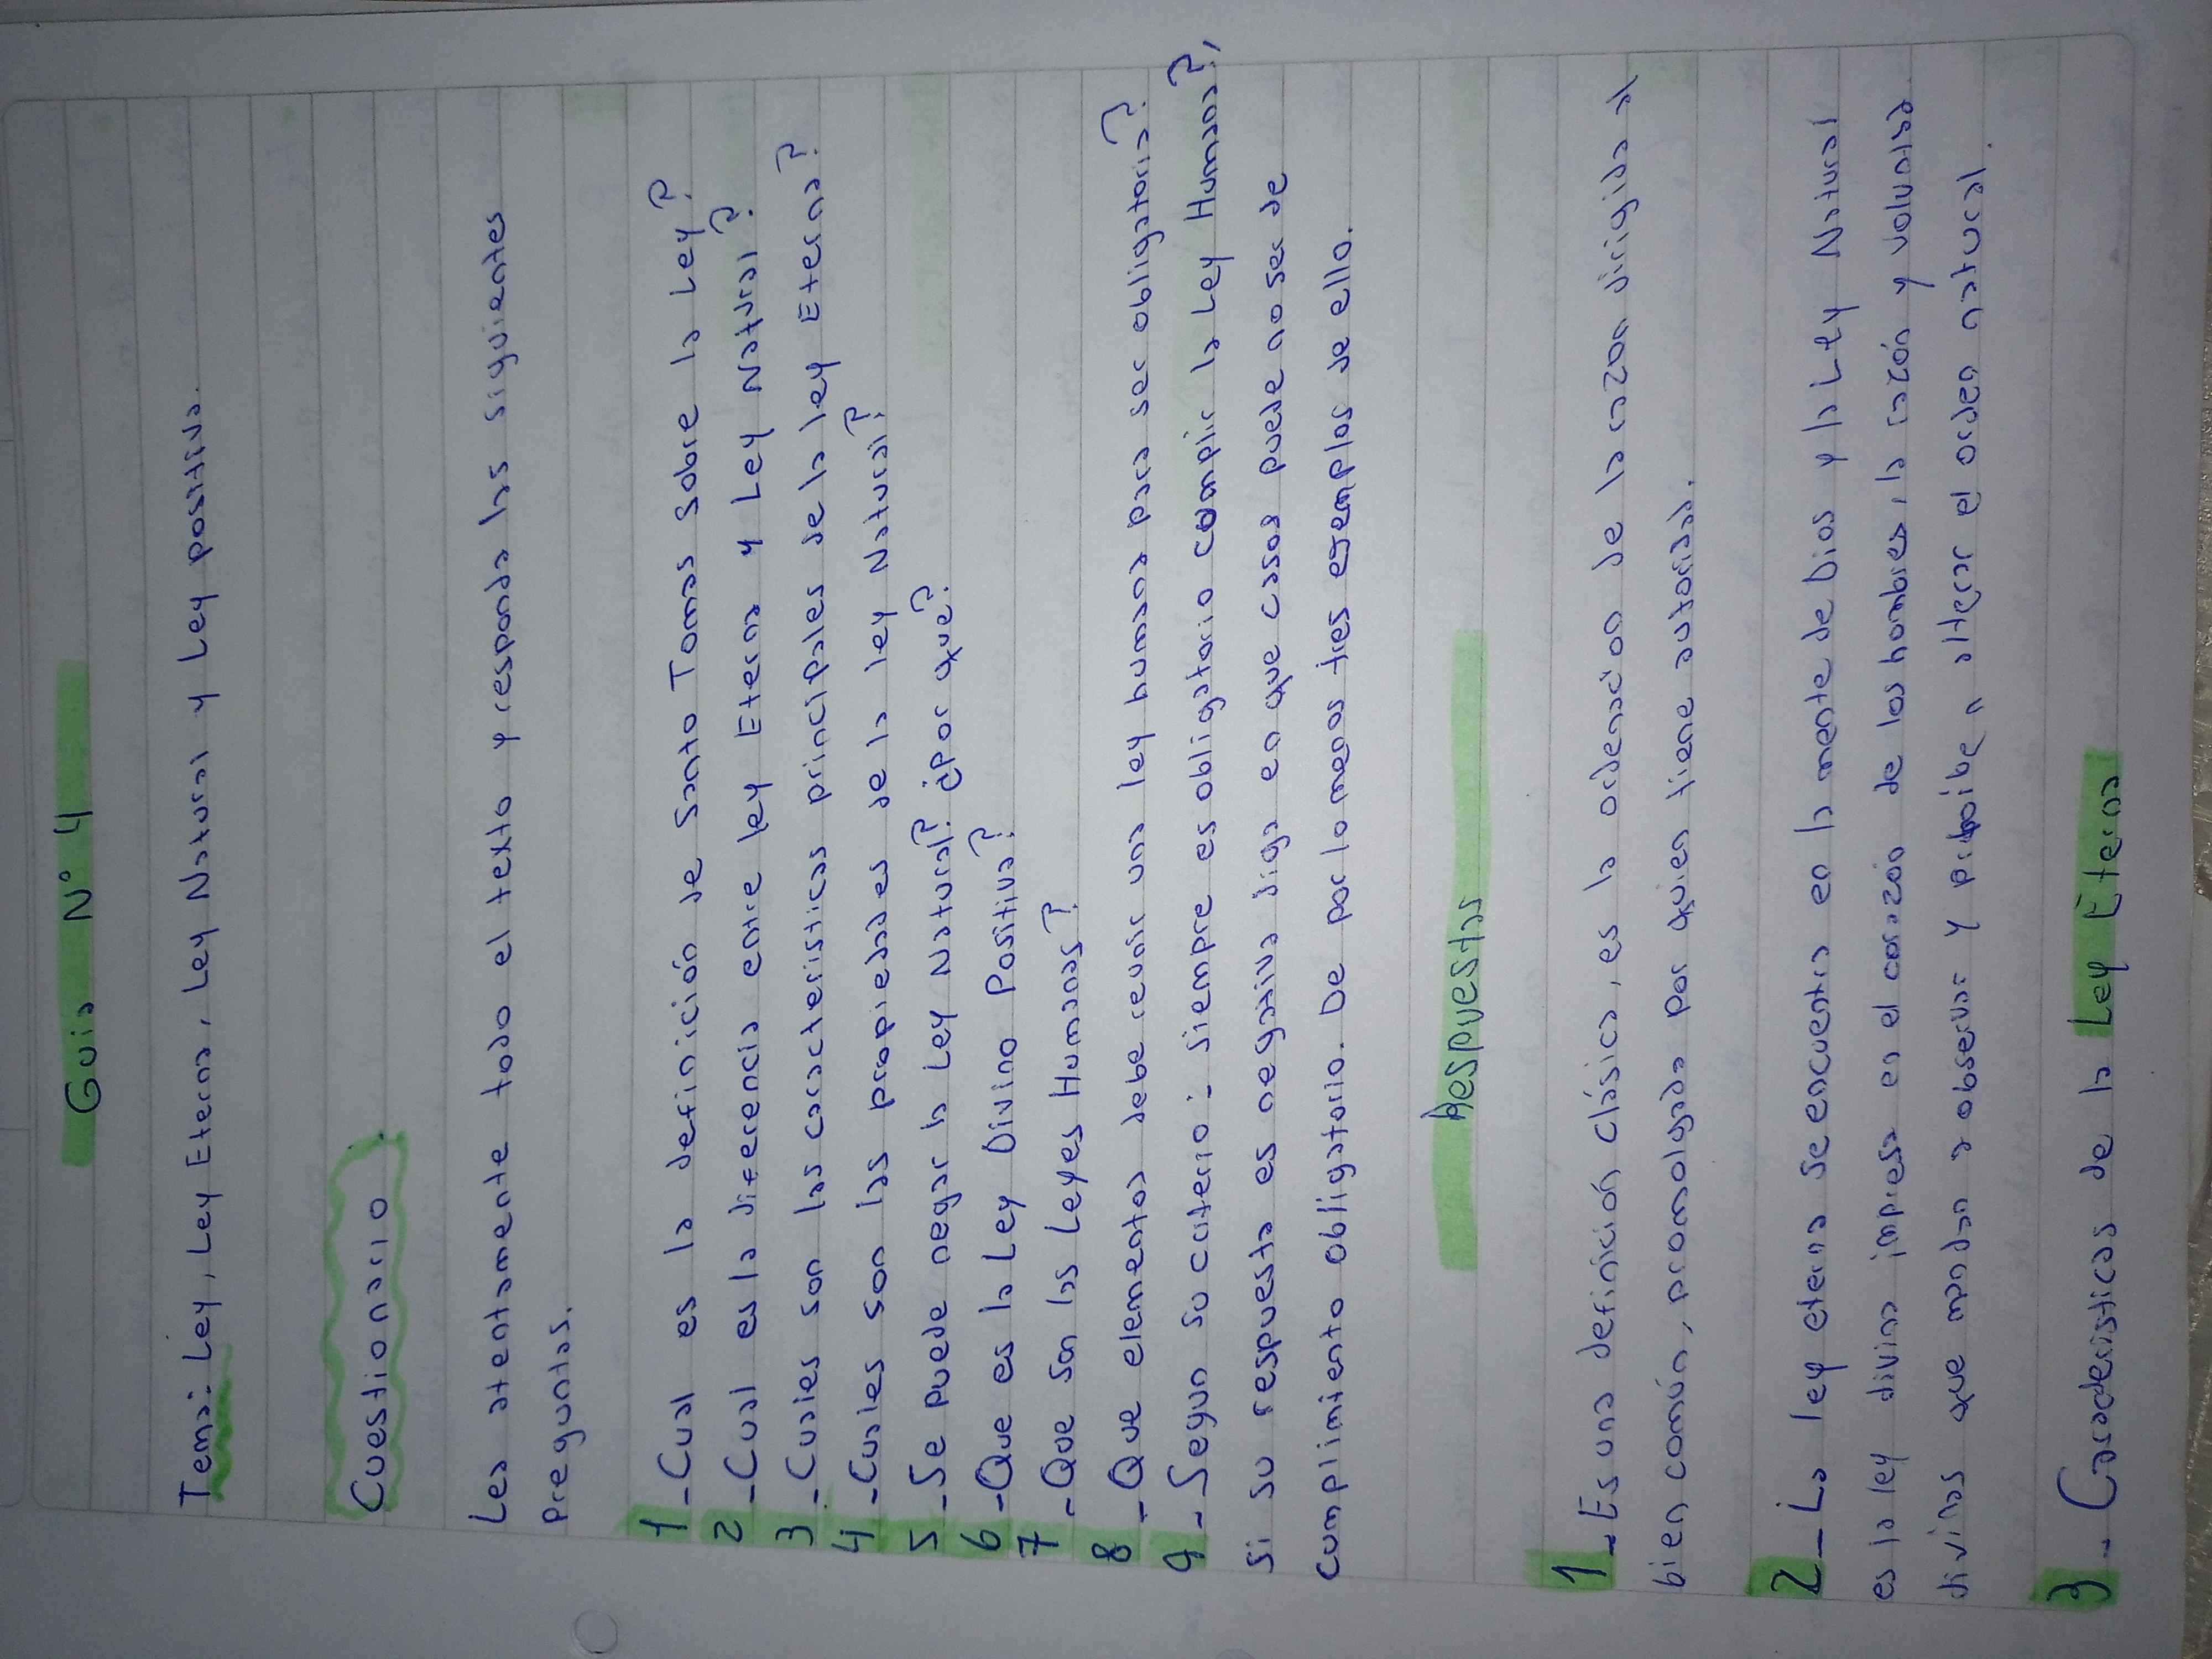 Guia N° 4
Tema: Ley, Ley Eterna, Ley Natural y Ley positiva.
Cuestionario
Lea atentamente todo el texto y responda las siguientes
preguntas.
1 - Cual es la definición de Santo Tomas sobre la Ley?
2 - Cual es la diferencia entre ley Eterna y Ley Natural?
3 - Cuales son las caracteristicas principales de la ley Eterna?
4 - Cuales son las propiedades de la ley Natural?
5 - Se puede negar la Ley Natural? ¿por que?
6 - Que es la Ley Divino Positiva?
7 - Que son las Leyes Humanas?
8 - Que elementos debe reunir una ley humana para ser obligatoria?
9 - Segun su criterio - siempre es obligatorio complir la Ley Humana?,
si su respuesta es negativa diga en que casos puede no ser de
cumplimiento obligatorio. De por lo menos tres ejemplos de ello.
Respuestas
1 - Es una definición clásica, es la ordenación de la razon dirigida al
bien común, promolgada por quien tiene autoridad.
2 - La ley eterna se encuentra en la mente de Dios y la Ley Natural
es la ley divina impresa en el corazón de los hombres, la razón y voluntad
divinas que mandan a observar y prohibe n alterar el orden natural.
3 - Caracteristicas de la Ley Eterna